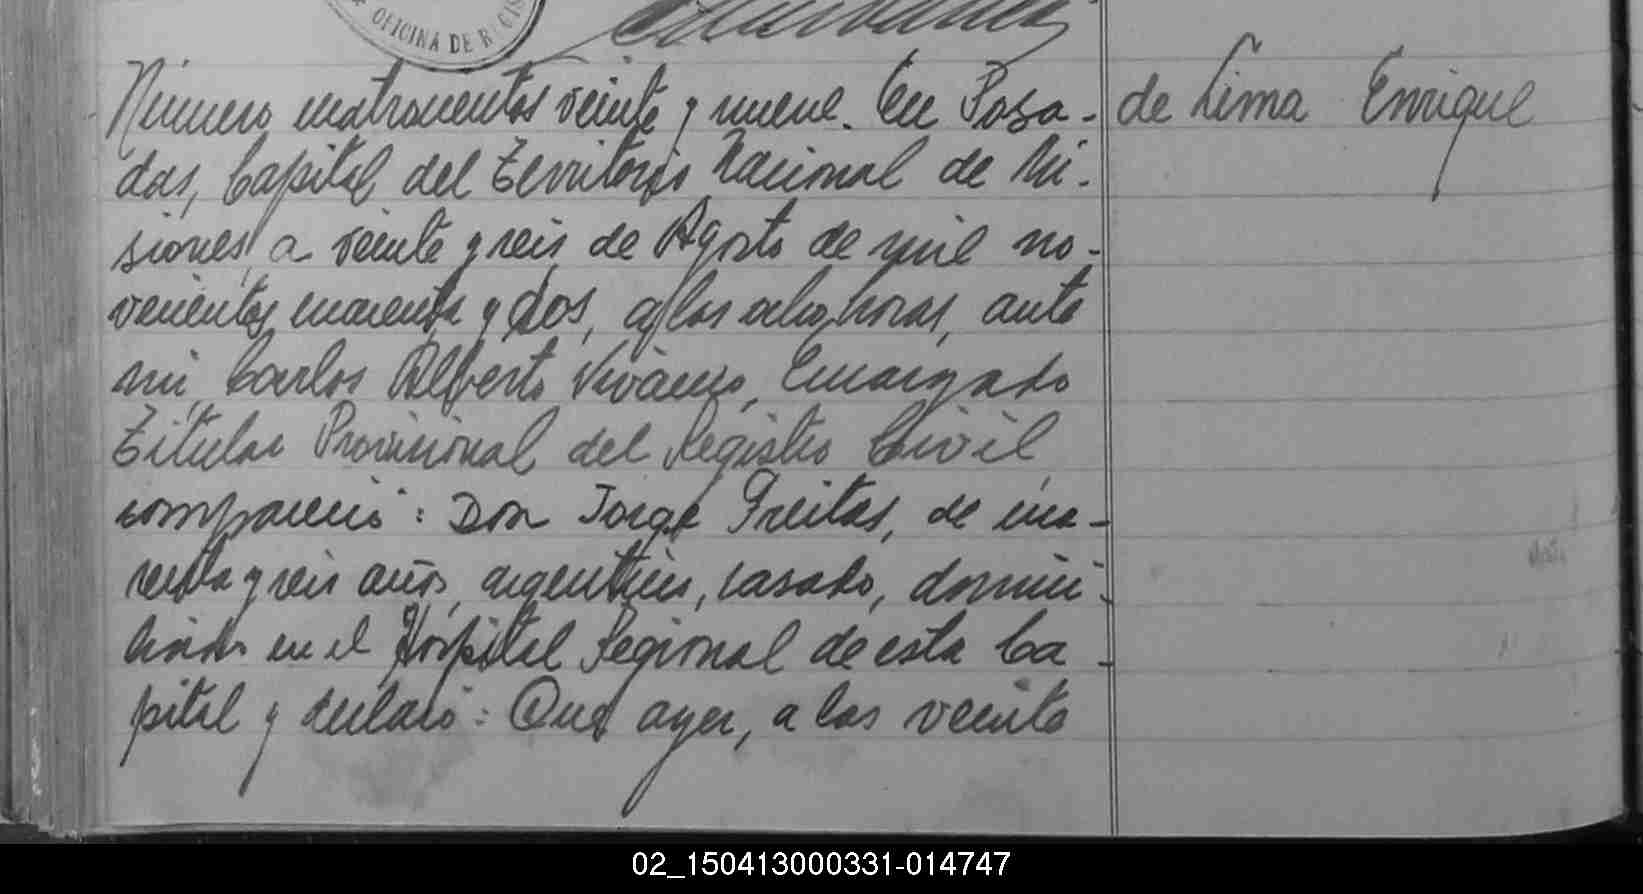 OFICINA DE REGIS
Número cuatrocientos veinte y nueve. En Posa- de Lima Enrique
das, Capital del Territorio Nacional de Mi-
siones, a veinte y seis de Agosto de mil no-
vecientos cuarenta y dos, a las ocho horas, ante
mi, Carlos Alberto Vivanco, Encargado
Titular Provisional del Registro Civil,
compareció: Don Jorge Freitas, de cua-
renta y seis años, argentino, casado, domici-
liado en el Hospital Regional de esta Ca-
pital y declaró: Que ayer, a las veinte
02_150413000331-014747